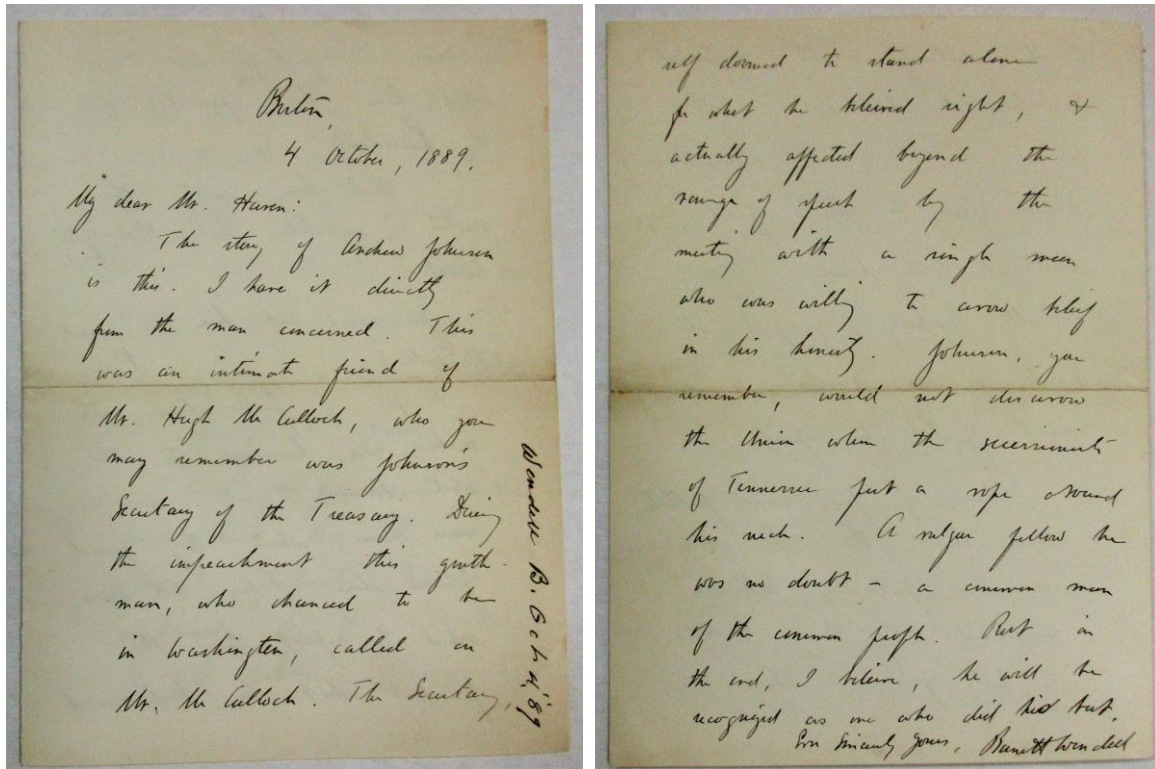 Boston,
4 October, 1889.
My dear Mr. Haven:
The story of Andrew Johnson
is this. I have it directly
from the man concerned. This
was an intimate friend of
Mr. Hugh McCulloch, who you
may remember was Johnson's
Secretary of the Treasury. During
the impeachment this gentle-
man, who chanced to be
in Washington, called on
Mr. McCulloch. The Secretary,
Wendell B. Oct 4, '89
self doomed to stand alone
for what he believed right, &
actually affected beyond the
range of speech by the
meeting with a single man
who was willing to avow belief
in his honesty. Johnson, you
remember, would not disavow
the Union when the secessionists
of Tennessee put a rope around
his neck. A vulgar fellow he
was no doubt – a common man
of the common people. But in
the end, I believe, he will be
recognized as one who did his best.
Ever Sincerely yours, Barrett Wendell